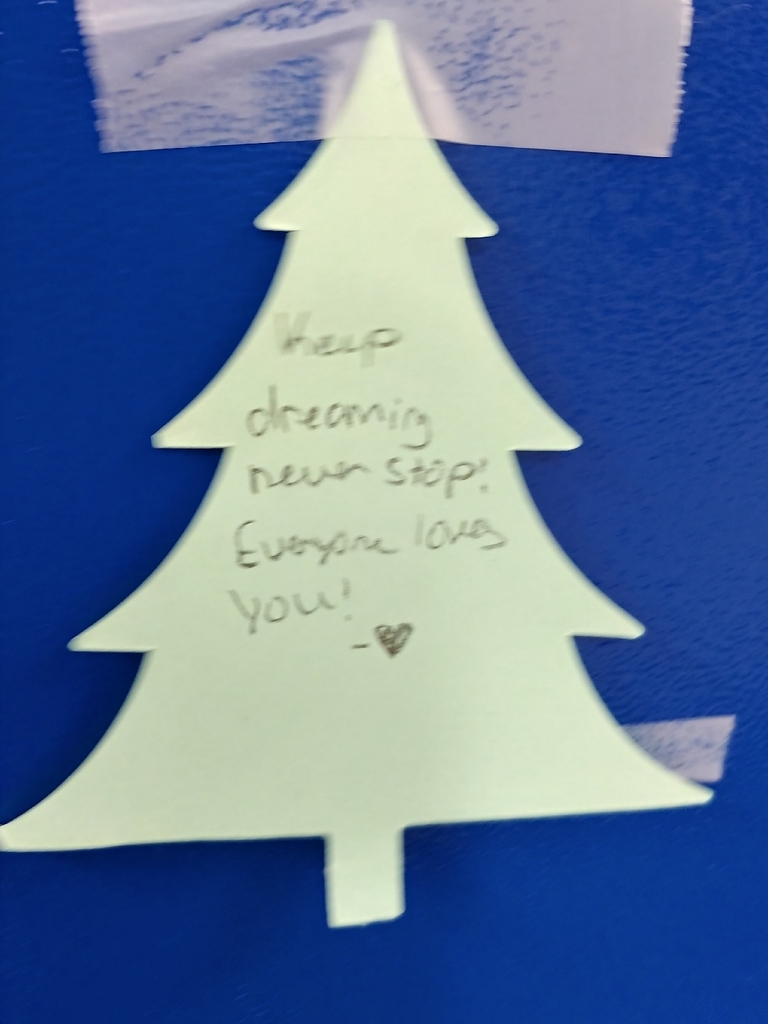 Keep
dreaming
never stop!
Everyone loves
You!
-♥